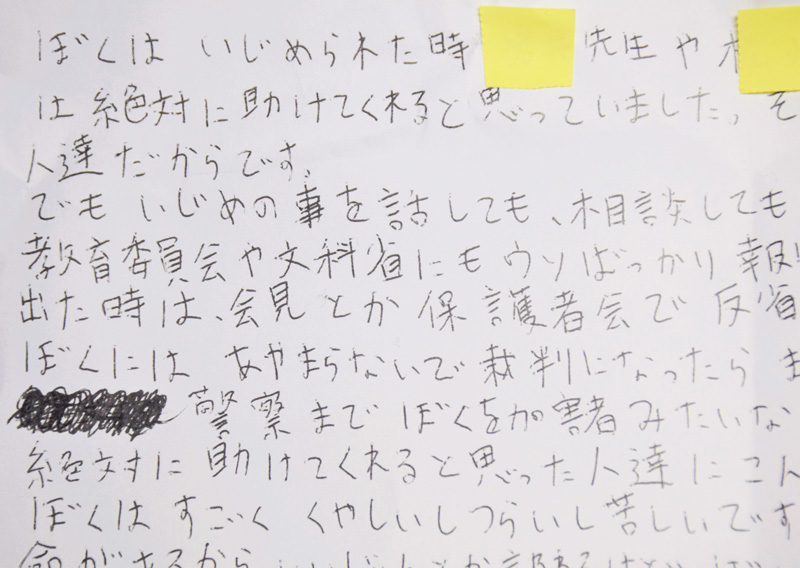 ぼくは いじめられた時 先生や
は絶対に助けてくれると思っていました。そ
人達だからです。
でも いじめの事を話しても、相談しても
教育委員会や文科省にもウソばっかり報
出た時は、会見とか保護者会で反省
ぼくには あやまらないで裁判になったら ま
警察まで ぼくを加害者みたいな
絶対に助けてくれると思った人達にこん
ぼくは すごく くやしいしつらいし苦しいです
命があるから